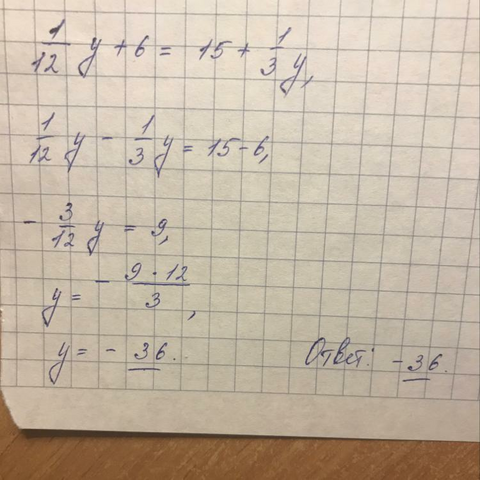 1/12 y + 6 = 15 + 1/3 y,
1/12 y - 1/3 y = 15 - 6,
- 3/12 y = 9,
y = - 9 · 12 / 3,
y = - 36. Ответ: - 36.